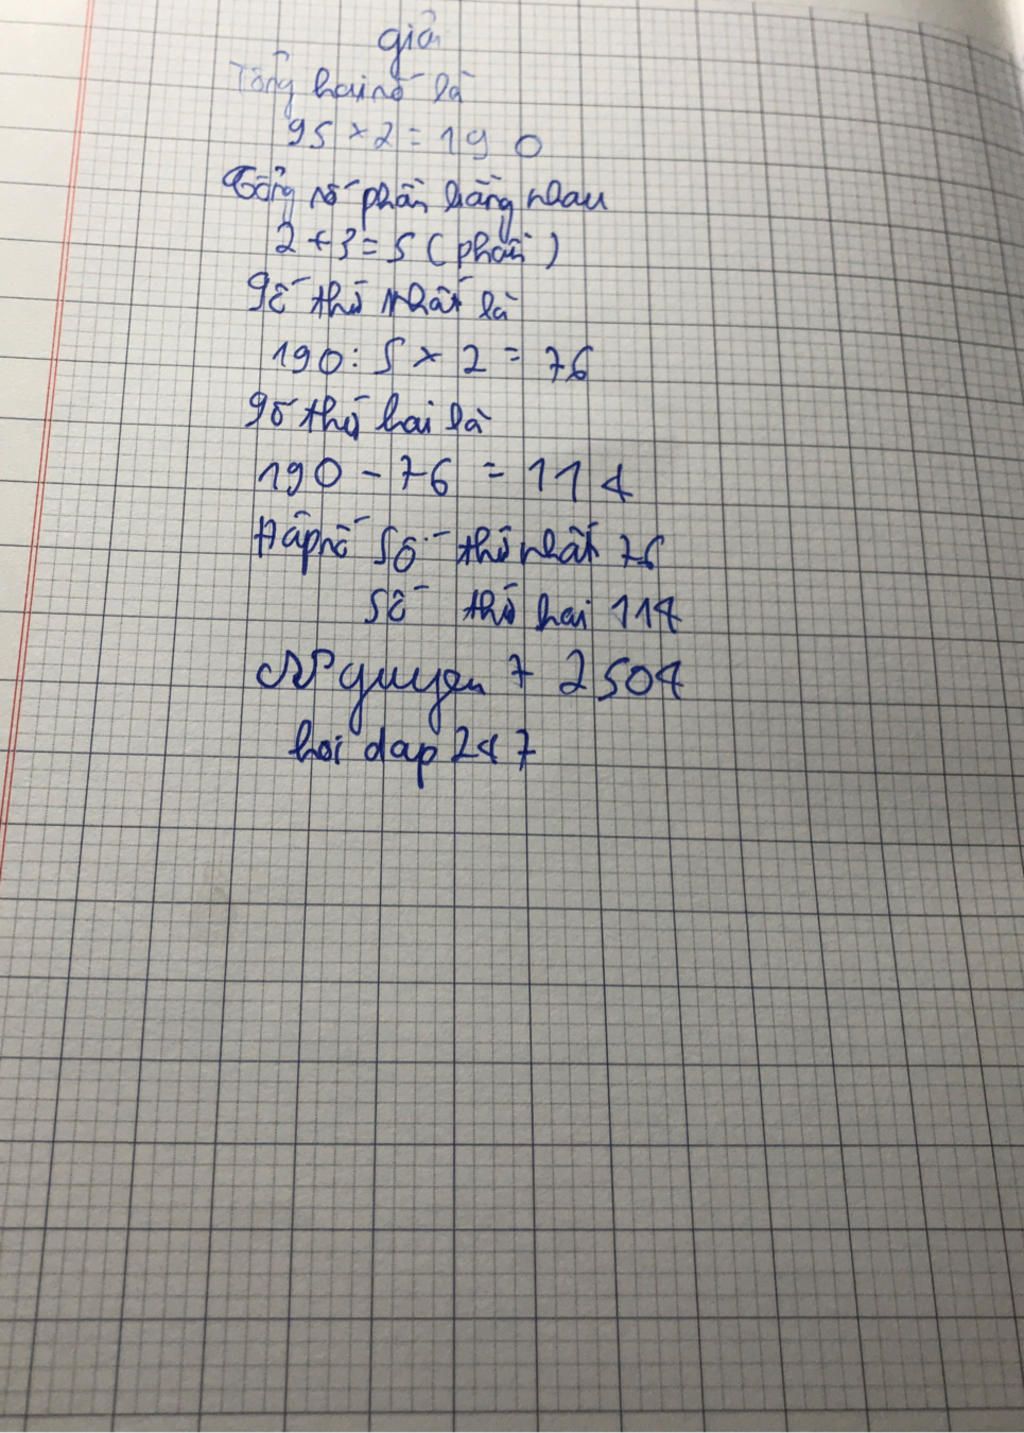 giải
Tổng hai số là
95 × 2 = 190
Tổng số phần bằng nhau
2 + 3 = 5 (phần)
Số thứ nhất là
190 : 5 × 2 = 76
Số thứ hai là
190 - 76 = 114
Đáp số Số thứ nhất 76
Số thứ hai 114
Nguyen 7 2504
hoi dap 247